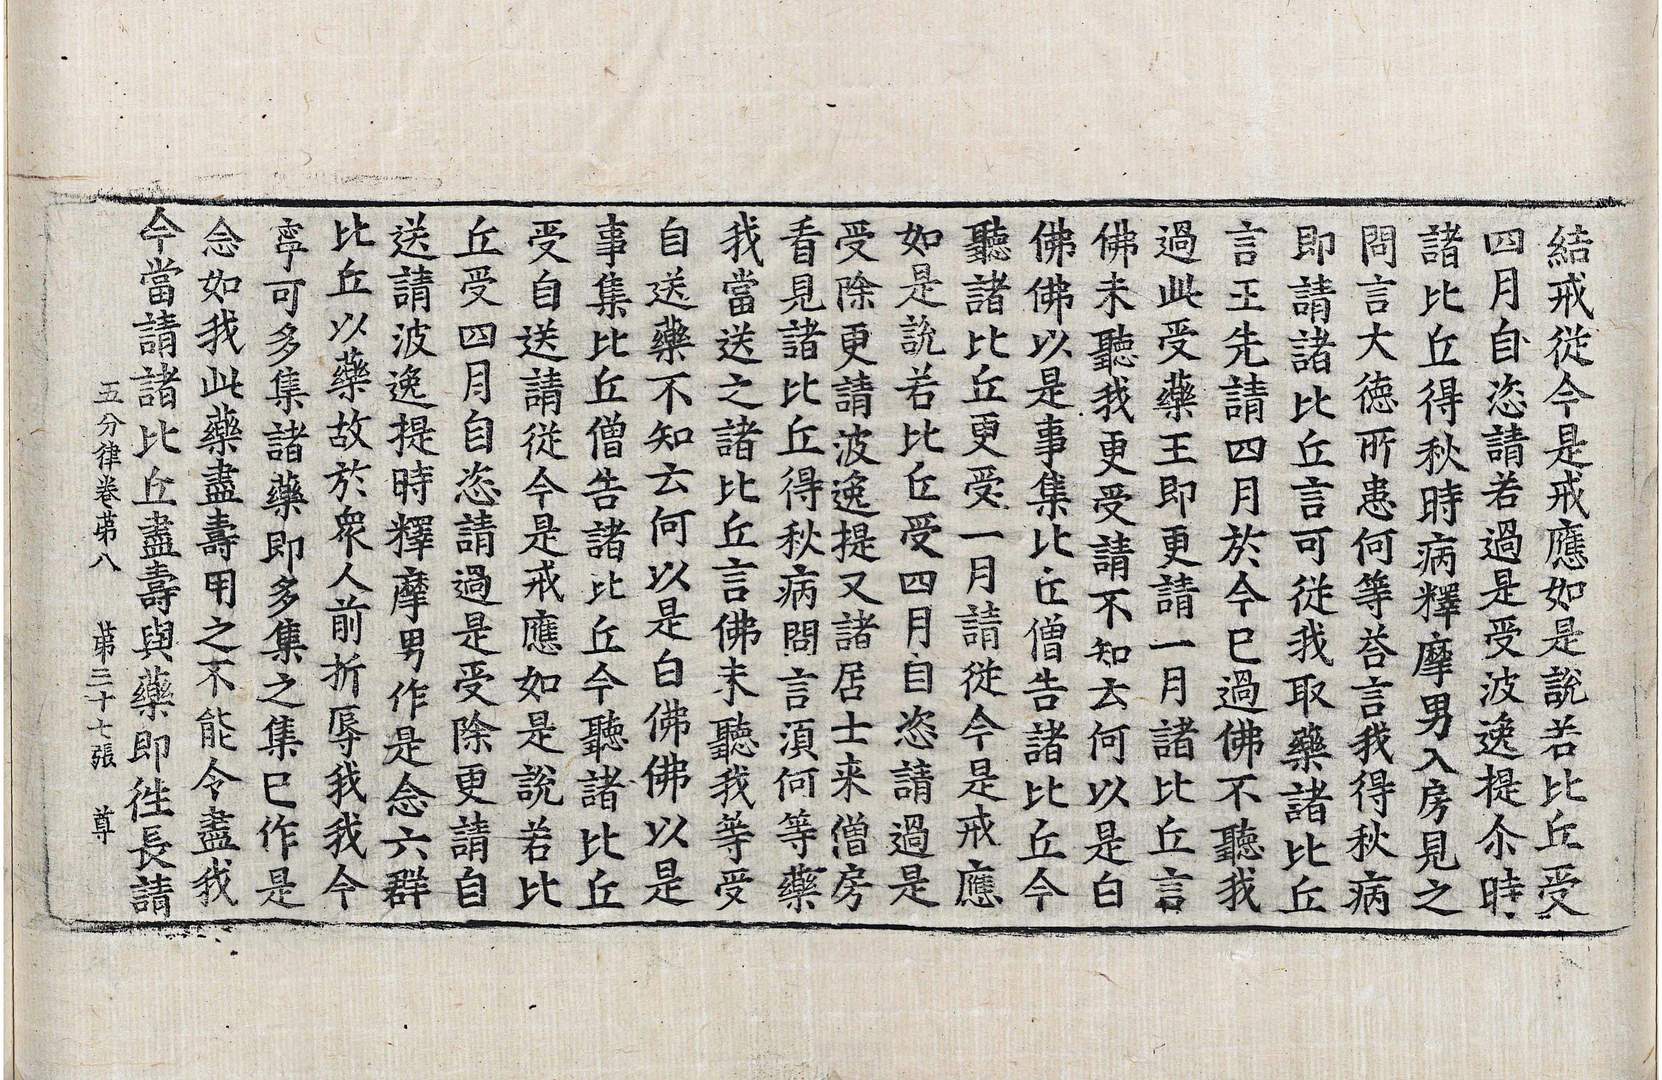 結戒從今是戒應如是說若比丘受
四月自恣請若過是受波逸提尒時
諸比丘得秋時病釋摩男入房見之
問言大德所患何等荅言我得秋病
即請諸比丘言可從我取藥諸比丘
言王先請四月於今已過佛不聽我
過此受藥王即更請一月諸比丘言
佛未聽我更受請不知云何以是白
佛佛以是事集比丘僧告諸比丘今
聽諸比丘更受一月請從今是戒應
如是說若比丘受四月自恣請過是
受除更請波逸提又諸居士来僧房
看見諸比丘得秋病問言湏何等藥
我當送之諸比丘言佛未聽我等受
自送藥不知云何以是白佛佛以是
事集比丘僧告諸比丘今聽諸比丘
受自送請從今是戒應如是說若比
丘受四月自恣請過是受除更請自
送請波逸提時釋摩男作是念六群
比丘以藥故於衆人前折辱我我今
寧可多集諸藥即多集之集已作是
念如我此藥盡壽用之不能令盡我
今當請諸比丘盡壽與藥即徃長請
五分律卷苐八 苐三十七張 尊